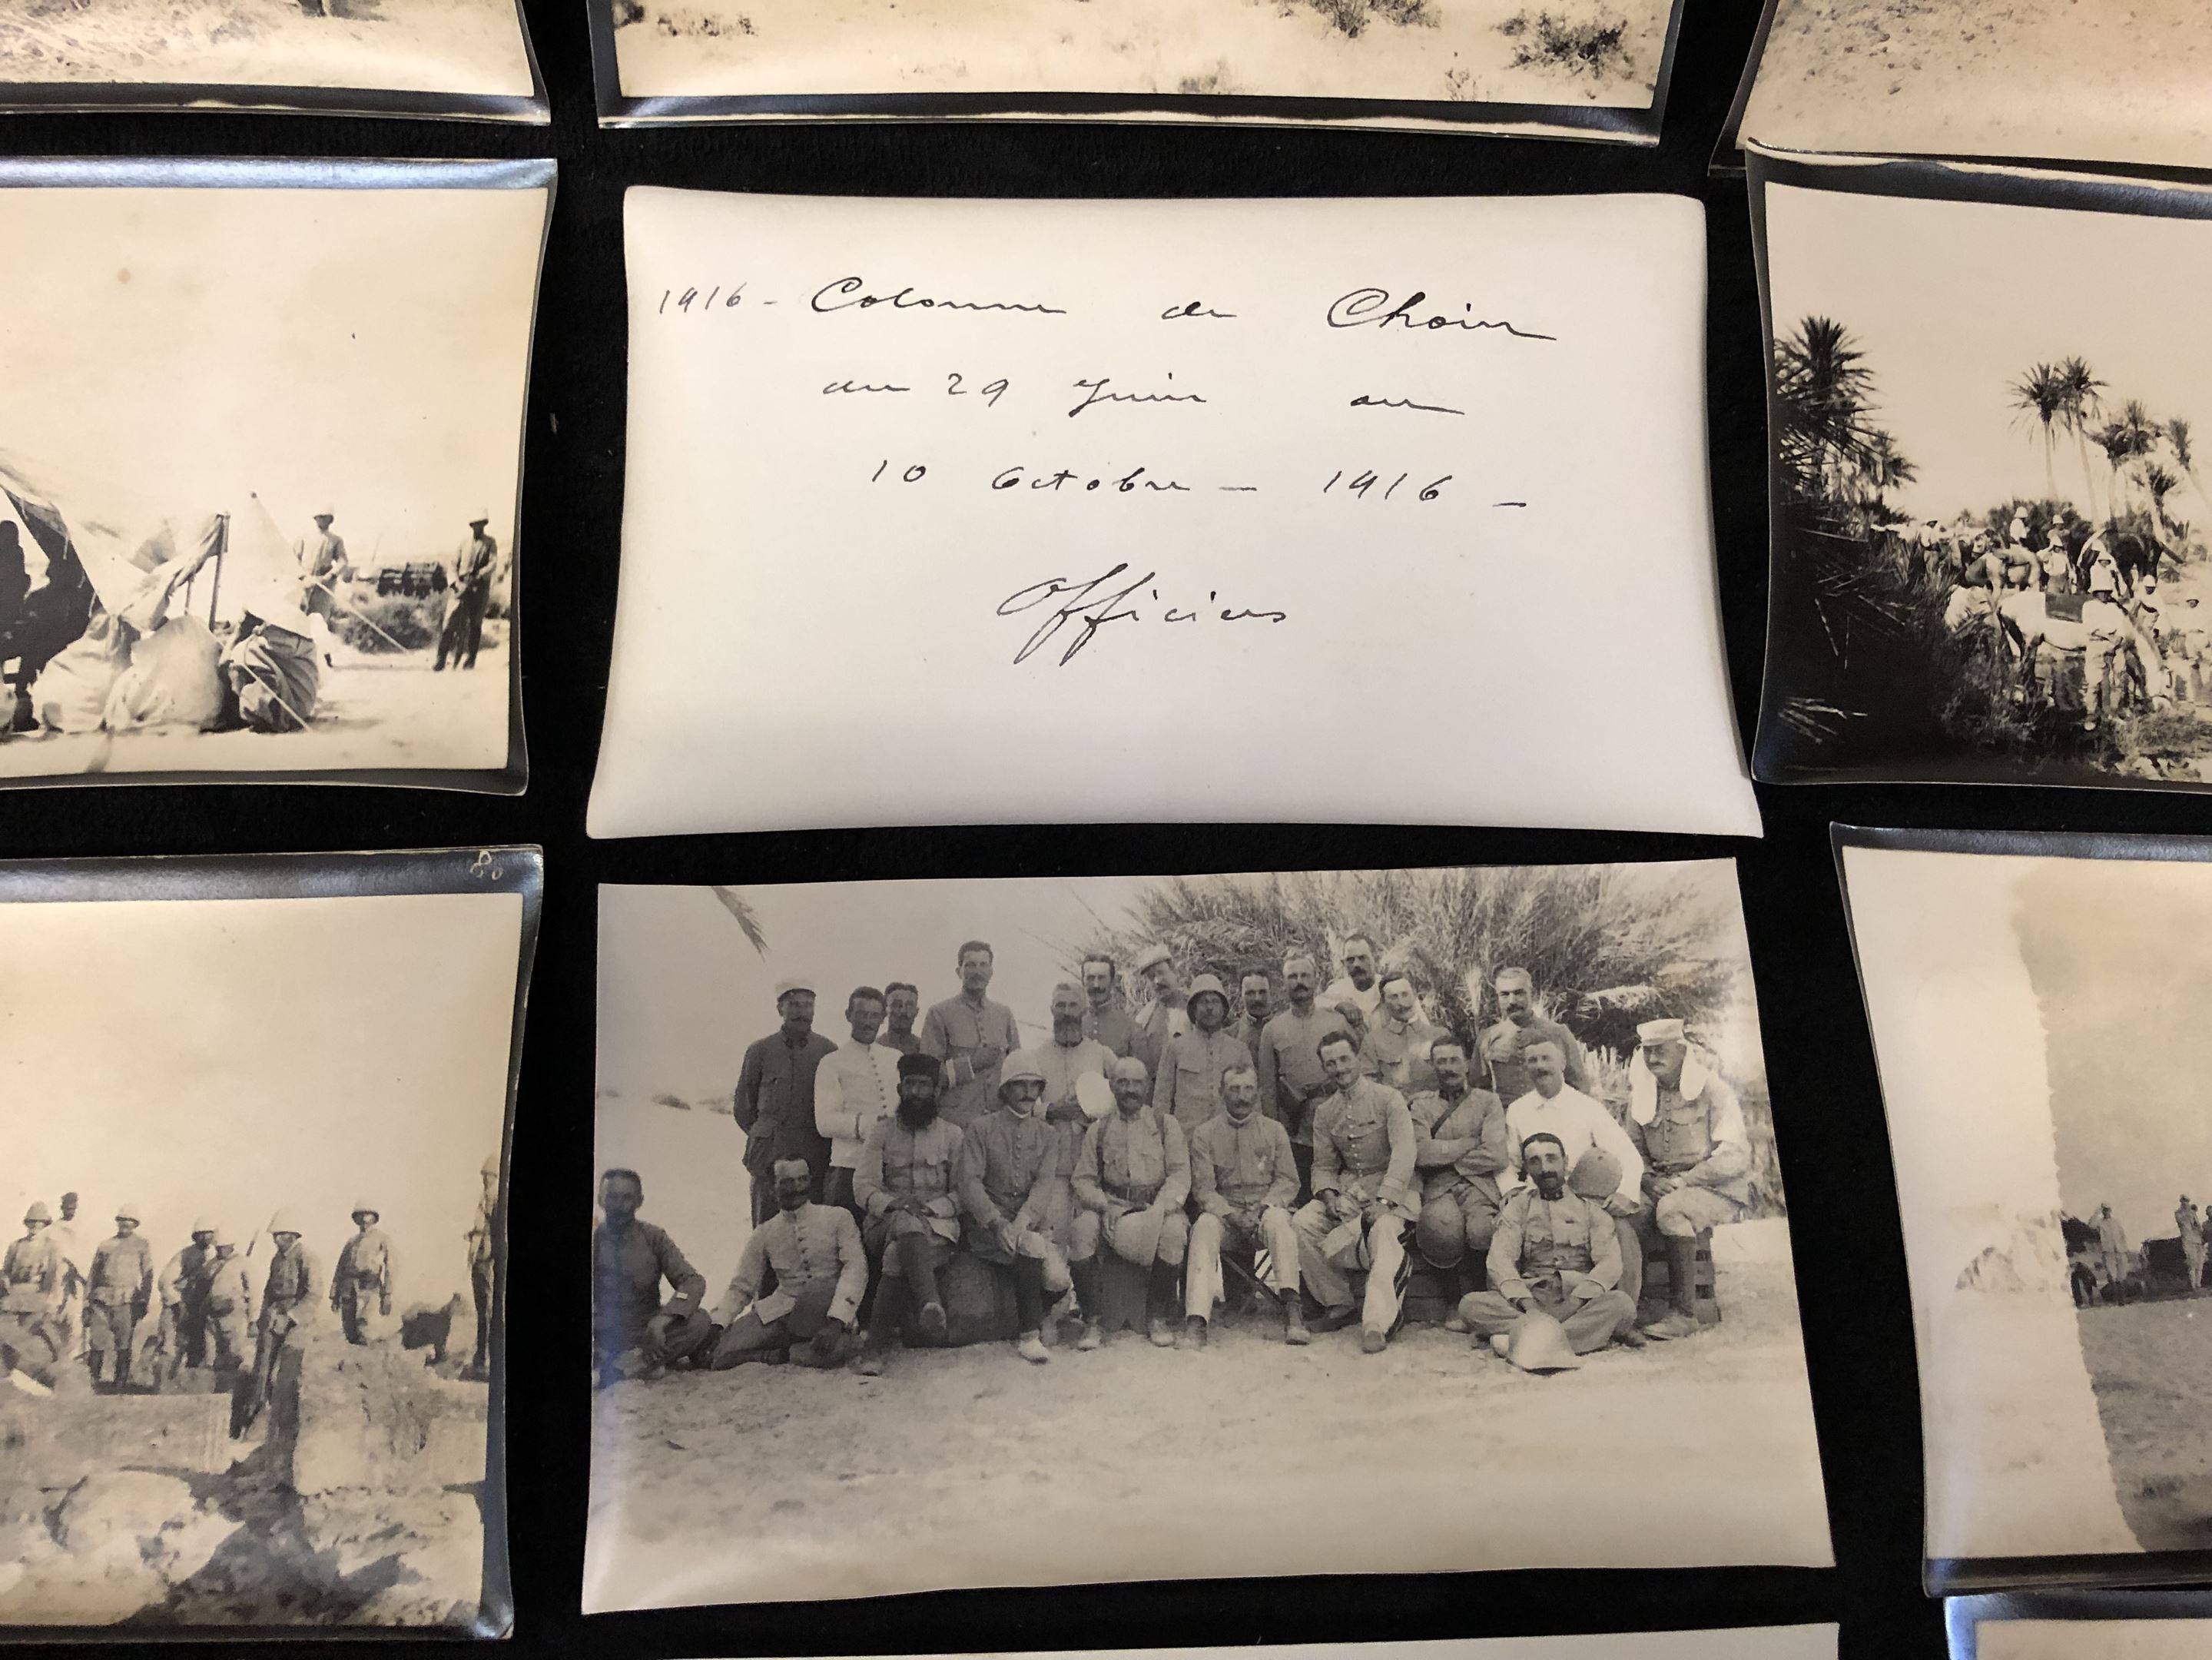 1916 - Colonne de Choin
du 29 Juin au
10 Octobre - 1916 -
Officiers
80